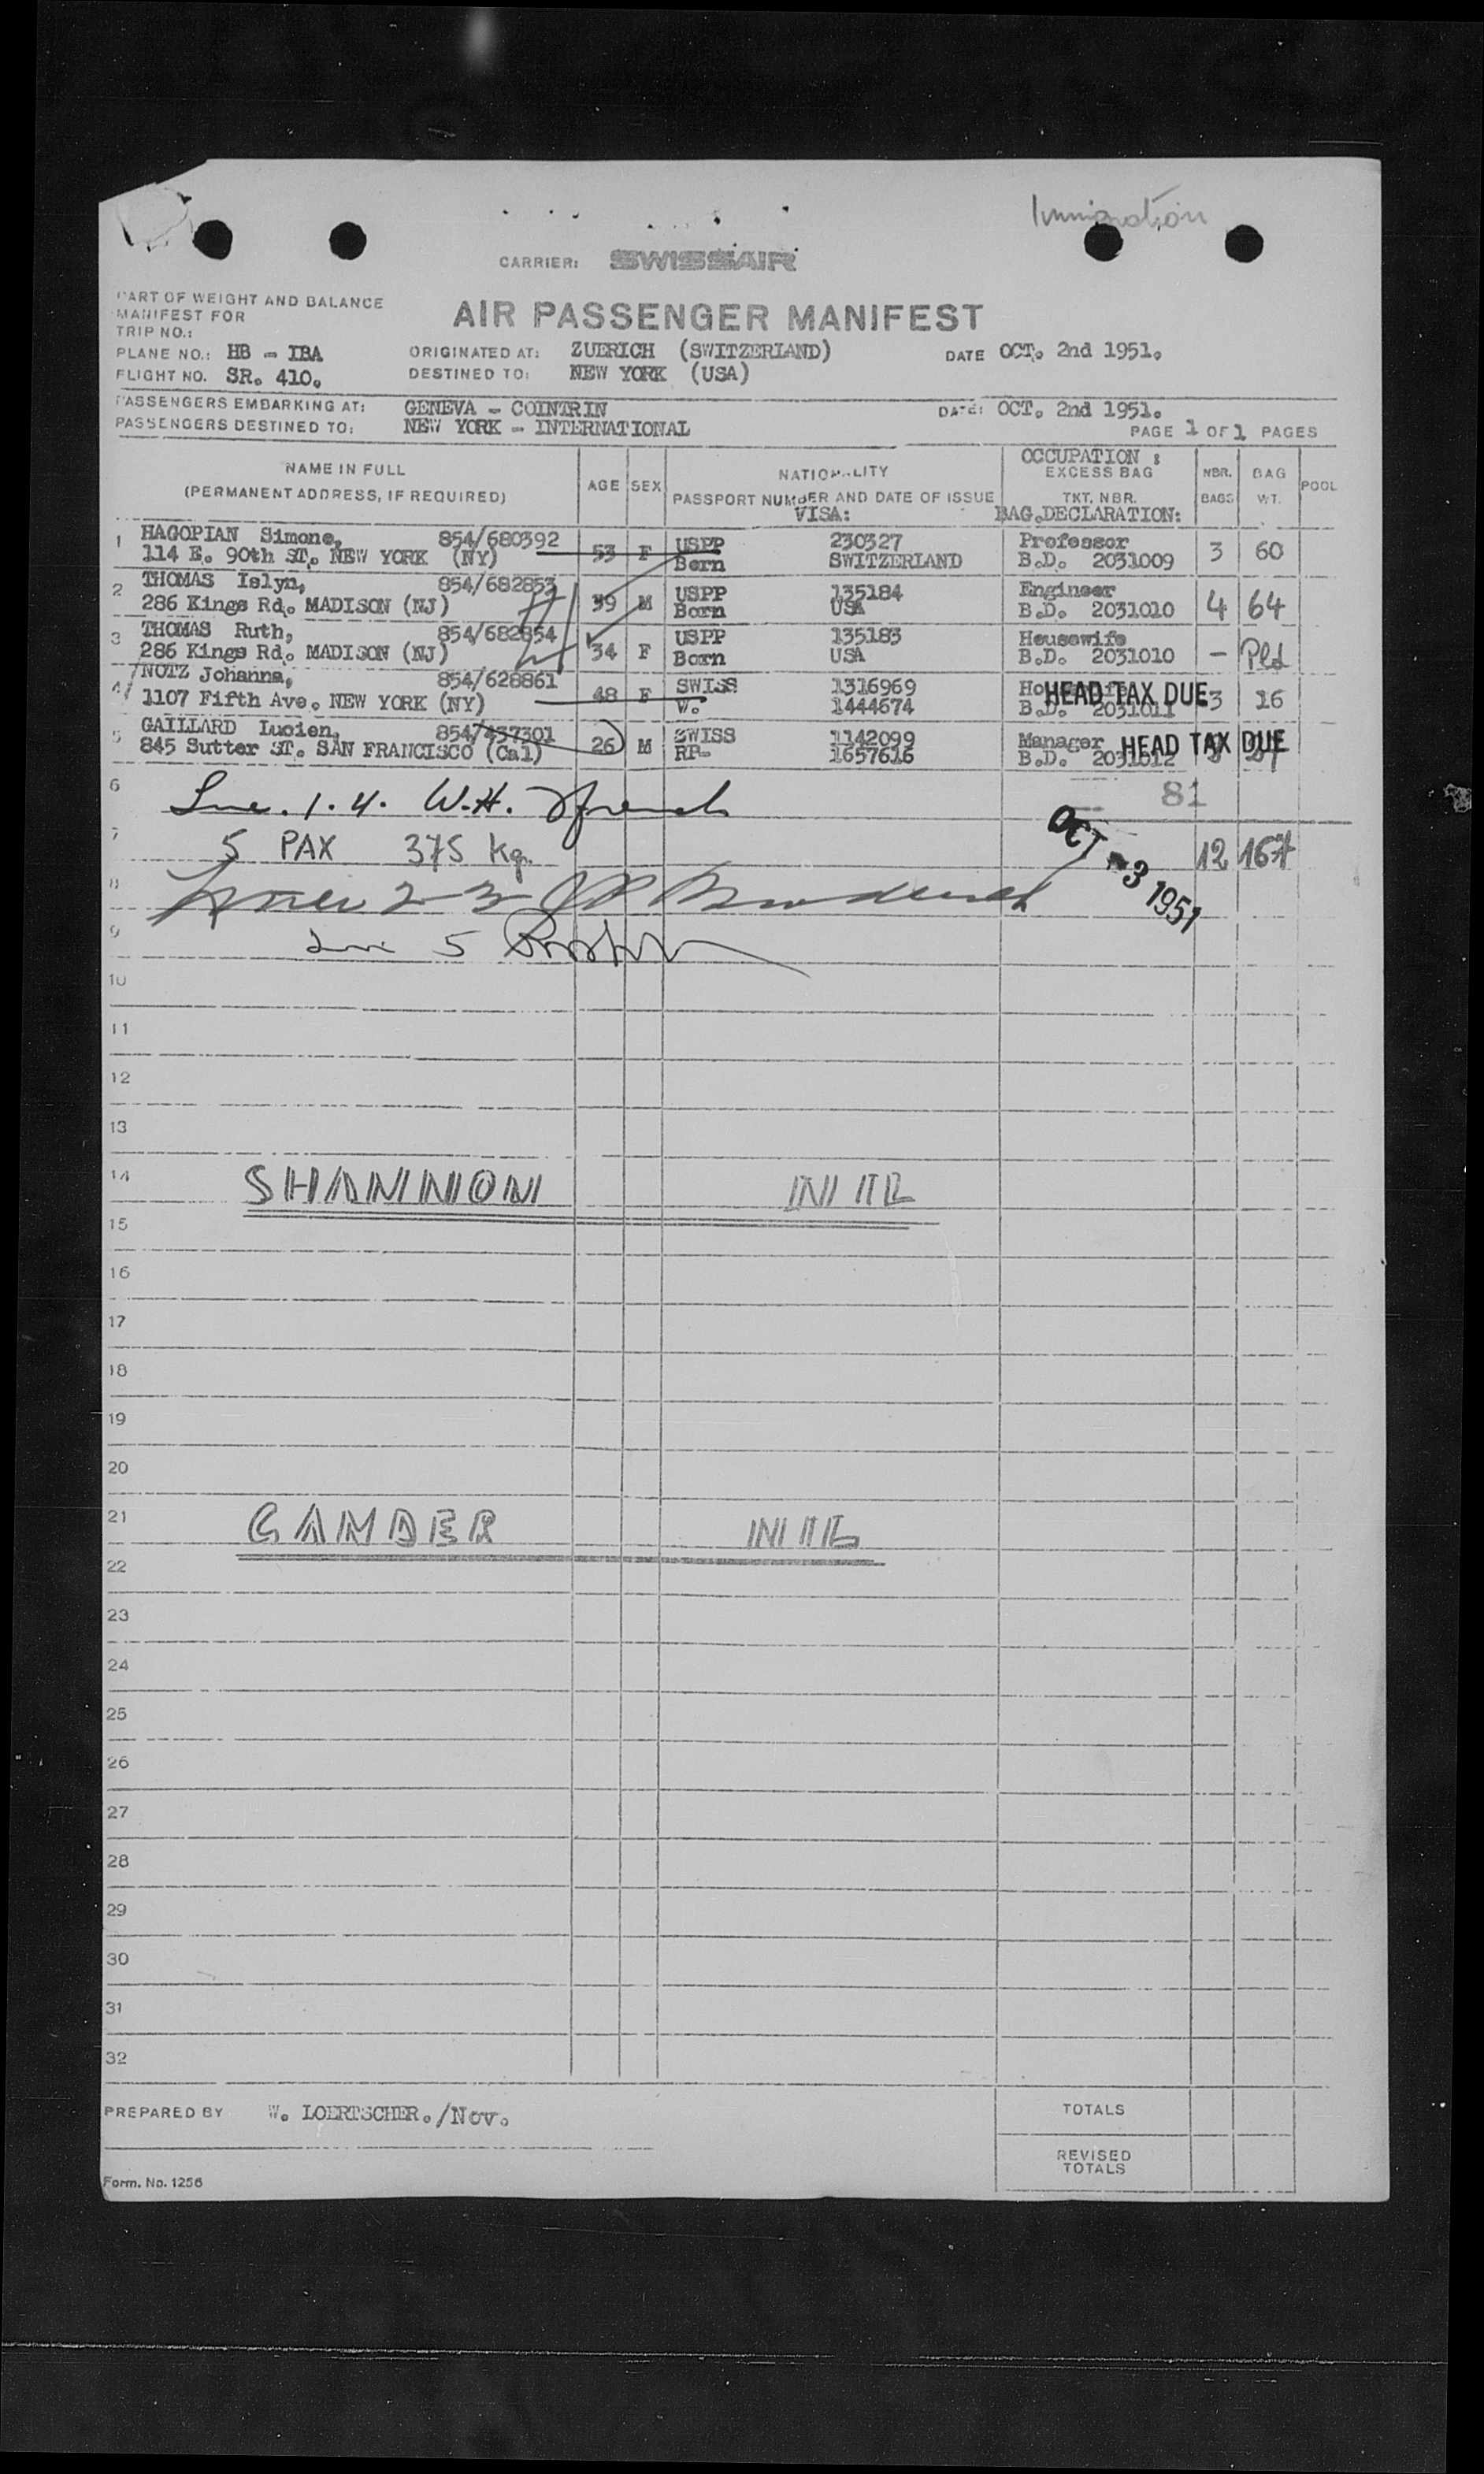 Immigration
CARRIER: SWISSAIR
PART OF WEIGHT AND BALANCE
MANIFEST FOR
AIR PASSENGER MANIFEST
TRIP NO.:
PLANE NO.: HB - IBA ORIGINATED AT: ZUERICH (SWITZERLAND) DATE OCT. 2nd 1951.
FLIGHT NO. SR. 410. DESTINED TO: NEW YORK (USA)
PASSENGERS EMBARKING AT: GENEVA - COINTRIN DATE: OCT. 2nd 1951.
PASSENGERS DESTINED TO: NEW YORK - INTERNATIONAL PAGE 1 OF 1 PAGES
NAME IN FULL
(PERMANENT ADDRESS, IF REQUIRED) AGE SEX NATIONALITY
PASSPORT NUMBER AND DATE OF ISSUE
VISA: OCCUPATION :
EXCESS BAG
TKT. NBR.
BAG.DECLARATION: NBR.
BAGS BAG
WT. POOL
1 HAGOPIAN Simone, 854/680392 53 F USPP 230327 Professor 3 60
114 E. 90th ST. NEW YORK (NY) Born SWITZERLAND B.D. 2031009
2 THOMAS Islyn, 854/682853 39 M USPP 135184 Engineer 4 64
286 Kings Rd. MADISON (NJ) Born USA B.D. 2031010
3 THOMAS Ruth, 854/682854 34 F USPP 135183 Housewife - Pld
286 Kings Rd. MADISON (NJ) Born USA B.D. 2031010
4 NOTZ Johanna, 854/628861 48 F SWISS 1316969 HEAD TAX DUE 3 16
1107 Fifth Ave. NEW YORK (NY) V. 1444674 B.D. 2031011
5 GAILLARD Lucien, 854/437301 26 M SWISS 1142099 Manager HEAD TAX DUE
845 Sutter ST. SAN FRANCISCO (Cal) RP- 1657616 B.D. 2031012
6 1.4. W.H. 81
7 5 PAX 375 kg. 12 167
OCT -3 1951
8 2-3
9 5
10
11
12
13
14 SHANNON NIL
15
16
17
18
19
20
21 GANDER NIL
22
23
24
25
26
27
28
29
30
31
32
PREPARED BY W. LOERTSCHER./Nov. TOTALS
REVISED
TOTALS
Form. No. 1256